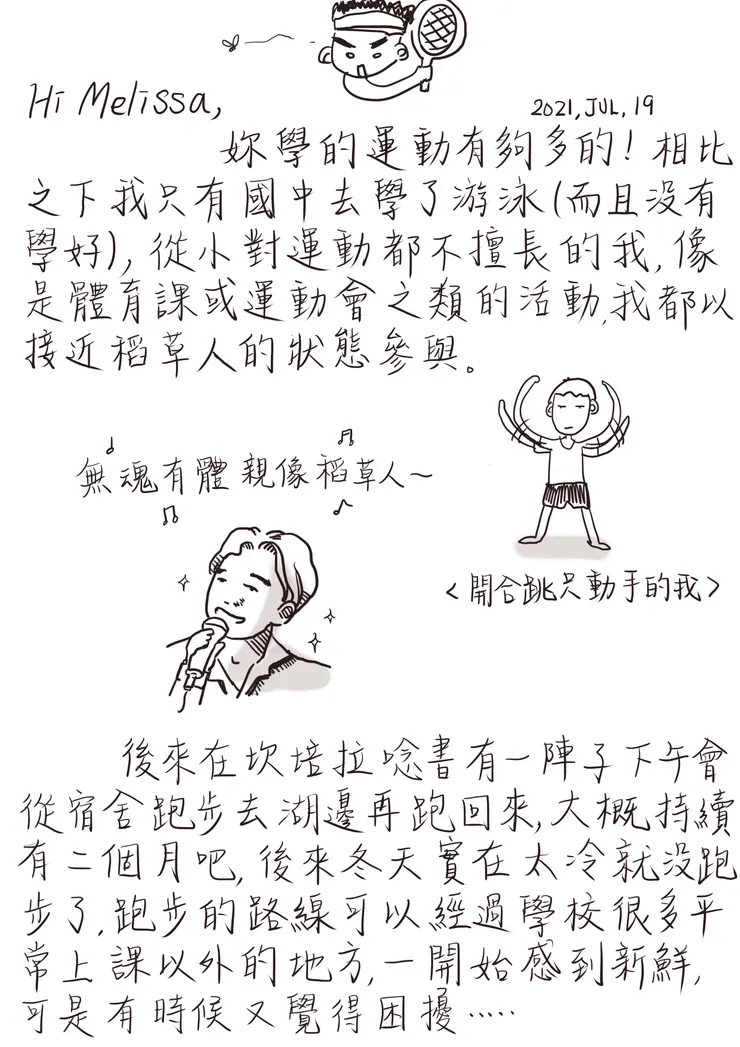 Hi Melissa,
2021, JUL, 19
妳學的運動有夠多的！相比
之下我只有國中去學了游泳(而且沒有
學好),從小對運動都不擅長的我,像
是體育課或運動會之類的活動,我都以
接近稻草人的狀態參與。
無魂有體親像稻草人~
<開合跳只動手的我>
後來在坎培拉唸書有一陣子下午會
從宿舍跑步去湖邊再跑回來,大概持續
有二個月吧,後來冬天實在太冷就沒跑
步了,跑步的路線可以經過學校很多平
常上課以外的地方,一開始感到新鮮,
可是有時候又覺得困擾.....